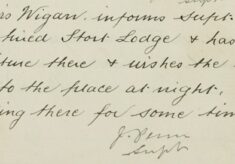 supt.
rs Wigan informs Supt.
hired Stort Lodge & has
ture there & wishes the
to the place at night.
ing there for some tim
J.
Supt